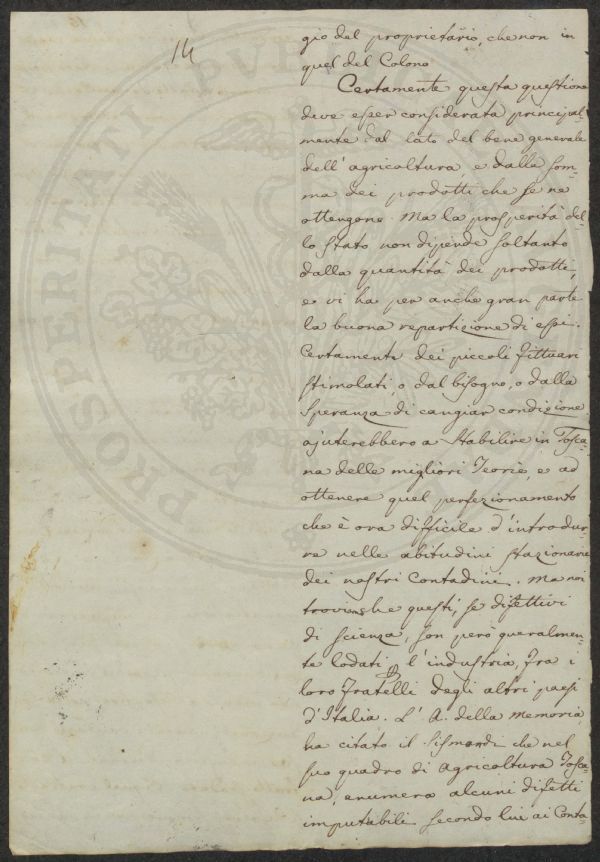 14
gio del proprietario, che non in
quel del Colono
Certamente questa questione
deve esser considerata principal=
mente dal lato del bene generale
dell'agricoltura, e dalla som=
ma dei prodotti che se ne
ottengono. Ma la prosperità del=
lo Stato non dipende soltanto
dalla quantità dei prodotti,
e vi ha per anche gran parte
la buona repartizione di essi.
Certamente dei piccoli fittuari
stimolati, o dal bisogno, o dalla
speranza di cangiar condizione
ajuterebbero a stabilire in Tosca=
na delle migliori Teorie, e ad
ottenere quel perfezionamento
che è ora difficile d'introdur=
re nelle abitudini stazionarie
dei nostri Contadini. Ma noi
che questi, se difettivi
di scienza, son però generalmen=
te lodati l'industria, fra i
loro fratelli degli altri paesi
d'Italia. L'A. della memoria
ha citato il Sismondi che nel
suo quadro di agricoltura Tosca=
na, enumera alcuni difetti
imputabili secondo lui ai Conta=
PROSPERITATI PVBLICAE